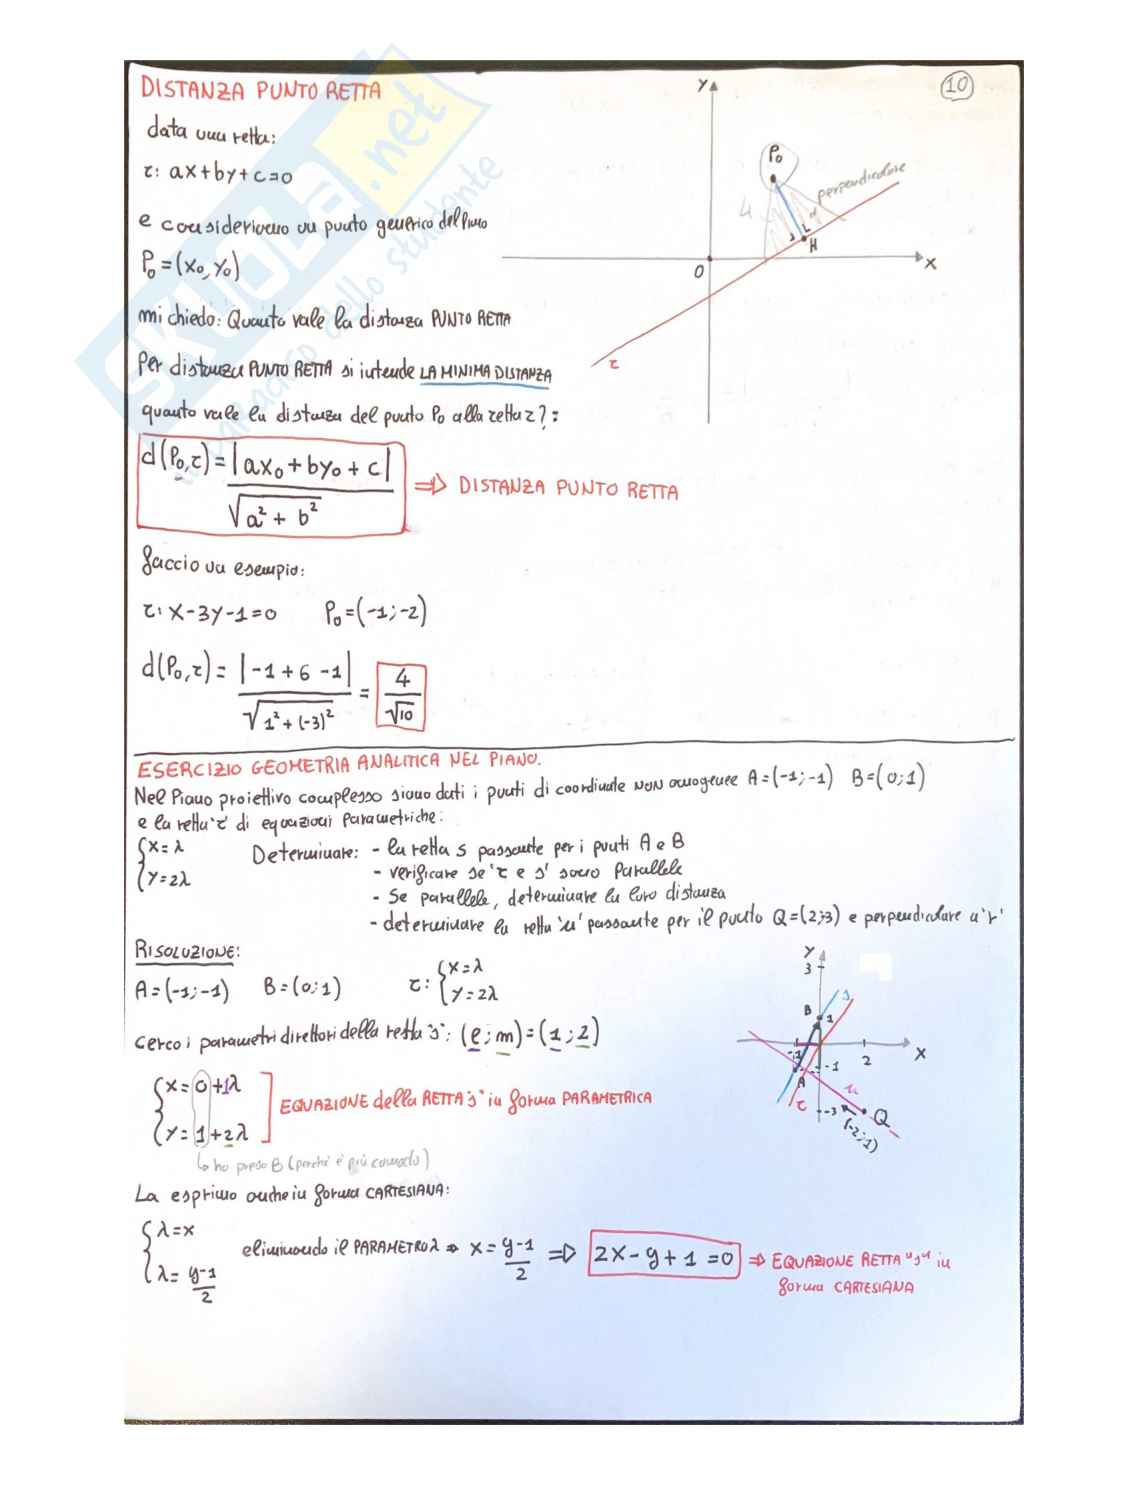 DISTANZA PUNTO RETTA
10
data una retta:
r: ax+by+c=0
e consideriamo un punto generico del Piano
P₀=(x₀,y₀)
mi chiedo: Quanto vale la distanza PUNTO RETTA
Per distanza PUNTO RETTA si intende LA MINIMA DISTANZA
quanto vale la distanza del punto P₀ alla retta r?:
Y
P₀
perpendicolare
H
0
x
r
d(P₀,r)=|ax₀+by₀+c|/√a²+b² ⇒ DISTANZA PUNTO RETTA
faccio un esempio:
r: x-3y-1=0 P₀=(-1;-2)
d(P₀,r)=|-1+6-1|/√1²+(-3)² = 4/√10
ESERCIZIO GEOMETRIA ANALITICA NEL PIANO.
Nel Piano proiettivo complesso siano dati i punti di coordinate non omogenee A=(-1;-1) B=(0;1)
e la retta 'r' di equazioni Parametriche:
{x=λ
y=2λ
Determinare: - la retta s passante per i punti A e B
- verificare se 'r e s' sono Parallele
- Se parallele, determinare la loro distanza
- determinare la retta 'u' passante per il punto Q=(2;-3) e perpendicolare a 'r'
RISOLUZIONE:
A=(-1;-1) B=(0;1) r: {x=λ
y=2λ
Cerco i parametri direttori della retta 's': (l;m)=(1;2)
{x=0+1λ
y=1+2λ
EQUAZIONE della RETTA 's' in forma PARAMETRICA
↳ ho preso B (perché è più comodo)
Y
3
s
B
1
-1
2
x
-1
A
r
u
-3
Q
(-2;1)
La esprimo anche in forma CARTESIANA:
{λ=x
λ=y-1/2
eliminando il PARAMETRO λ ⇒ x=y-1/2 ⇒ 2x-y+1=0 ⇒ EQUAZIONE RETTA "s" in
forma CARTESIANA
SKUOLA.net